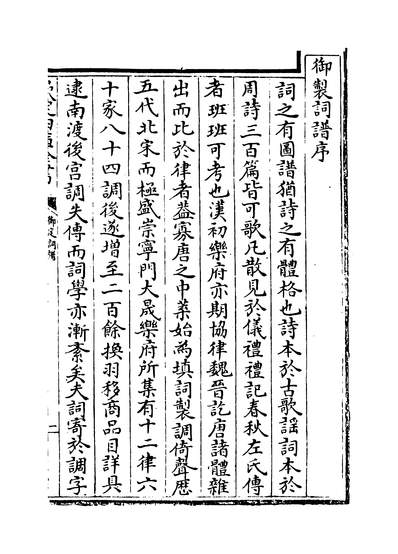 御製詞譜序
詞之有圖譜猶詩之有體格也詩本於古歌謡詞本於
周詩三百篇皆可歌凡散見於儀禮禮記春秋左氏傳
者班班可考也漢初樂府亦期協律魏晉訖唐諸體雜
出而比於律者葢寡唐之中葉始為填詞製調倚聲歴
五代北宋而極盛崇寧門大晟樂府所集有十二律六
十家八十四調後遂增至二百餘換羽移商品目詳具
逮南渡後宫調失傳而詞學亦漸紊矣夫詞寄於調字